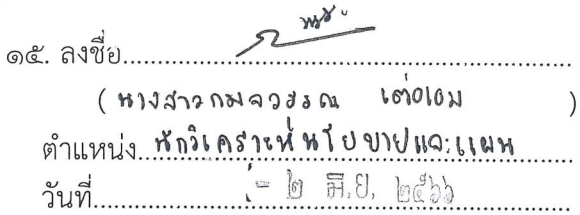 ๑๕. ลงชื่อ
(นางสาวกมลวรรณ เต๋อเอม)
ตำแหน่ง นักวิเคราะห์นโยบายและแผน
วันที่ - ๒ มิ.ย. ๒๕๖๖